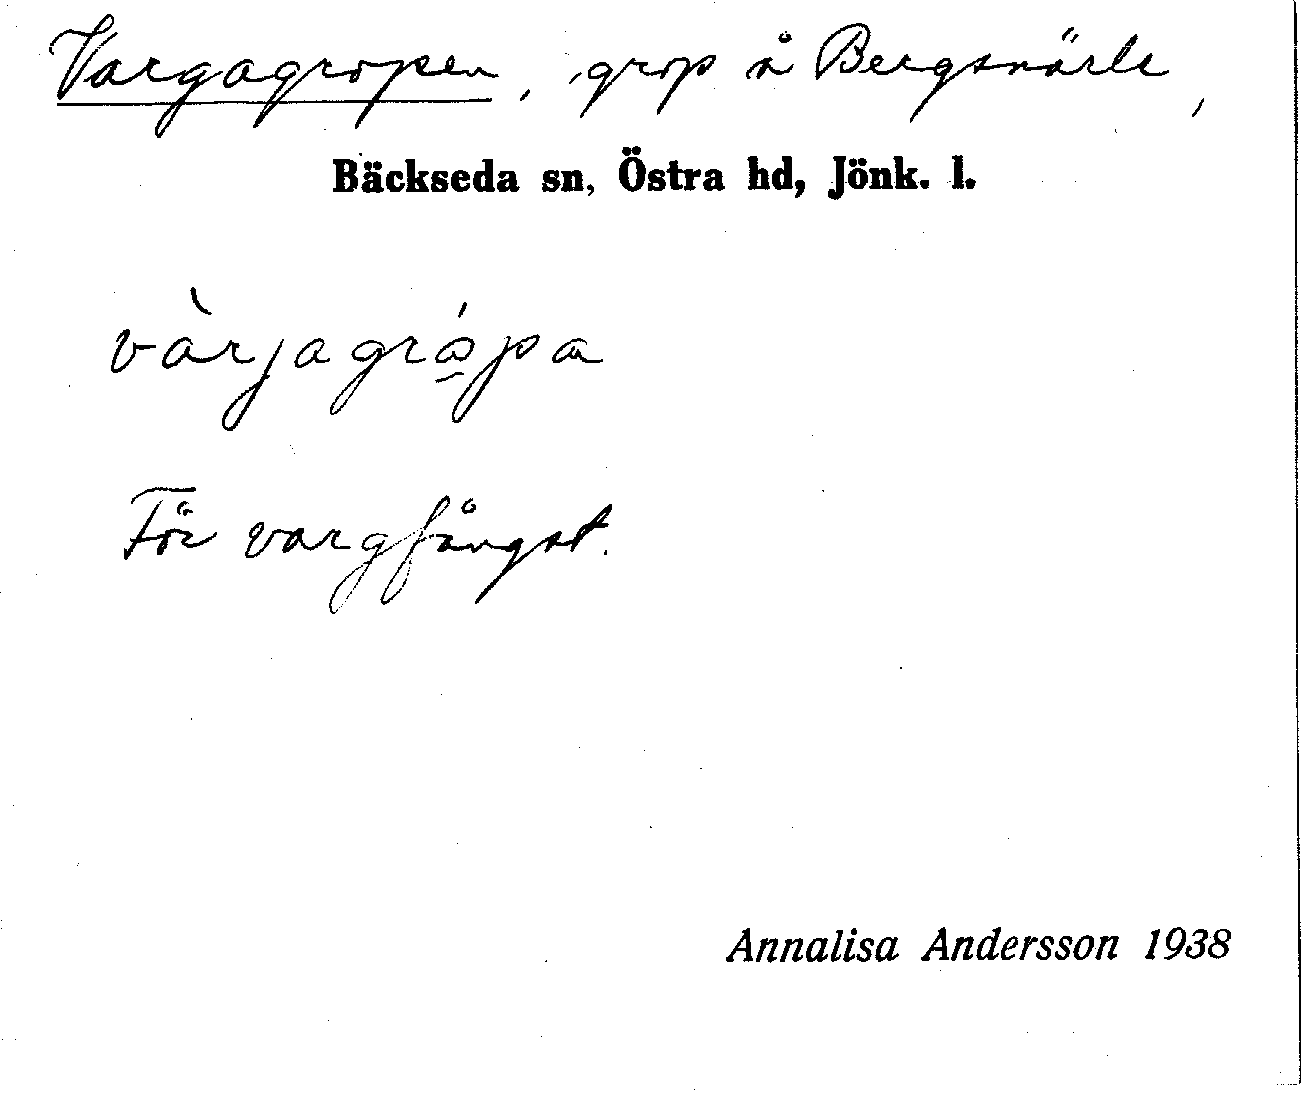 Vargagropen, grop å Bergsnärle,
Bäckseda sn, Östra hd, Jönk. l.
vàrjagrópa
För vargfångst.
Annalisa Andersson 1938